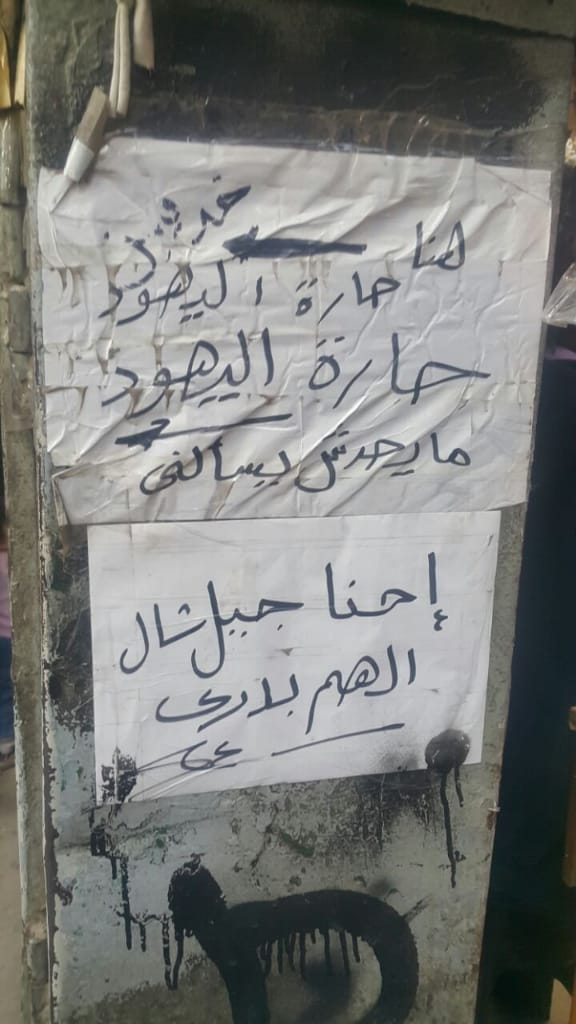 هنا
حارة اليهود
حارة اليهود
مايحدش يسألنى
إحنا جيل شال
الهم بدرى